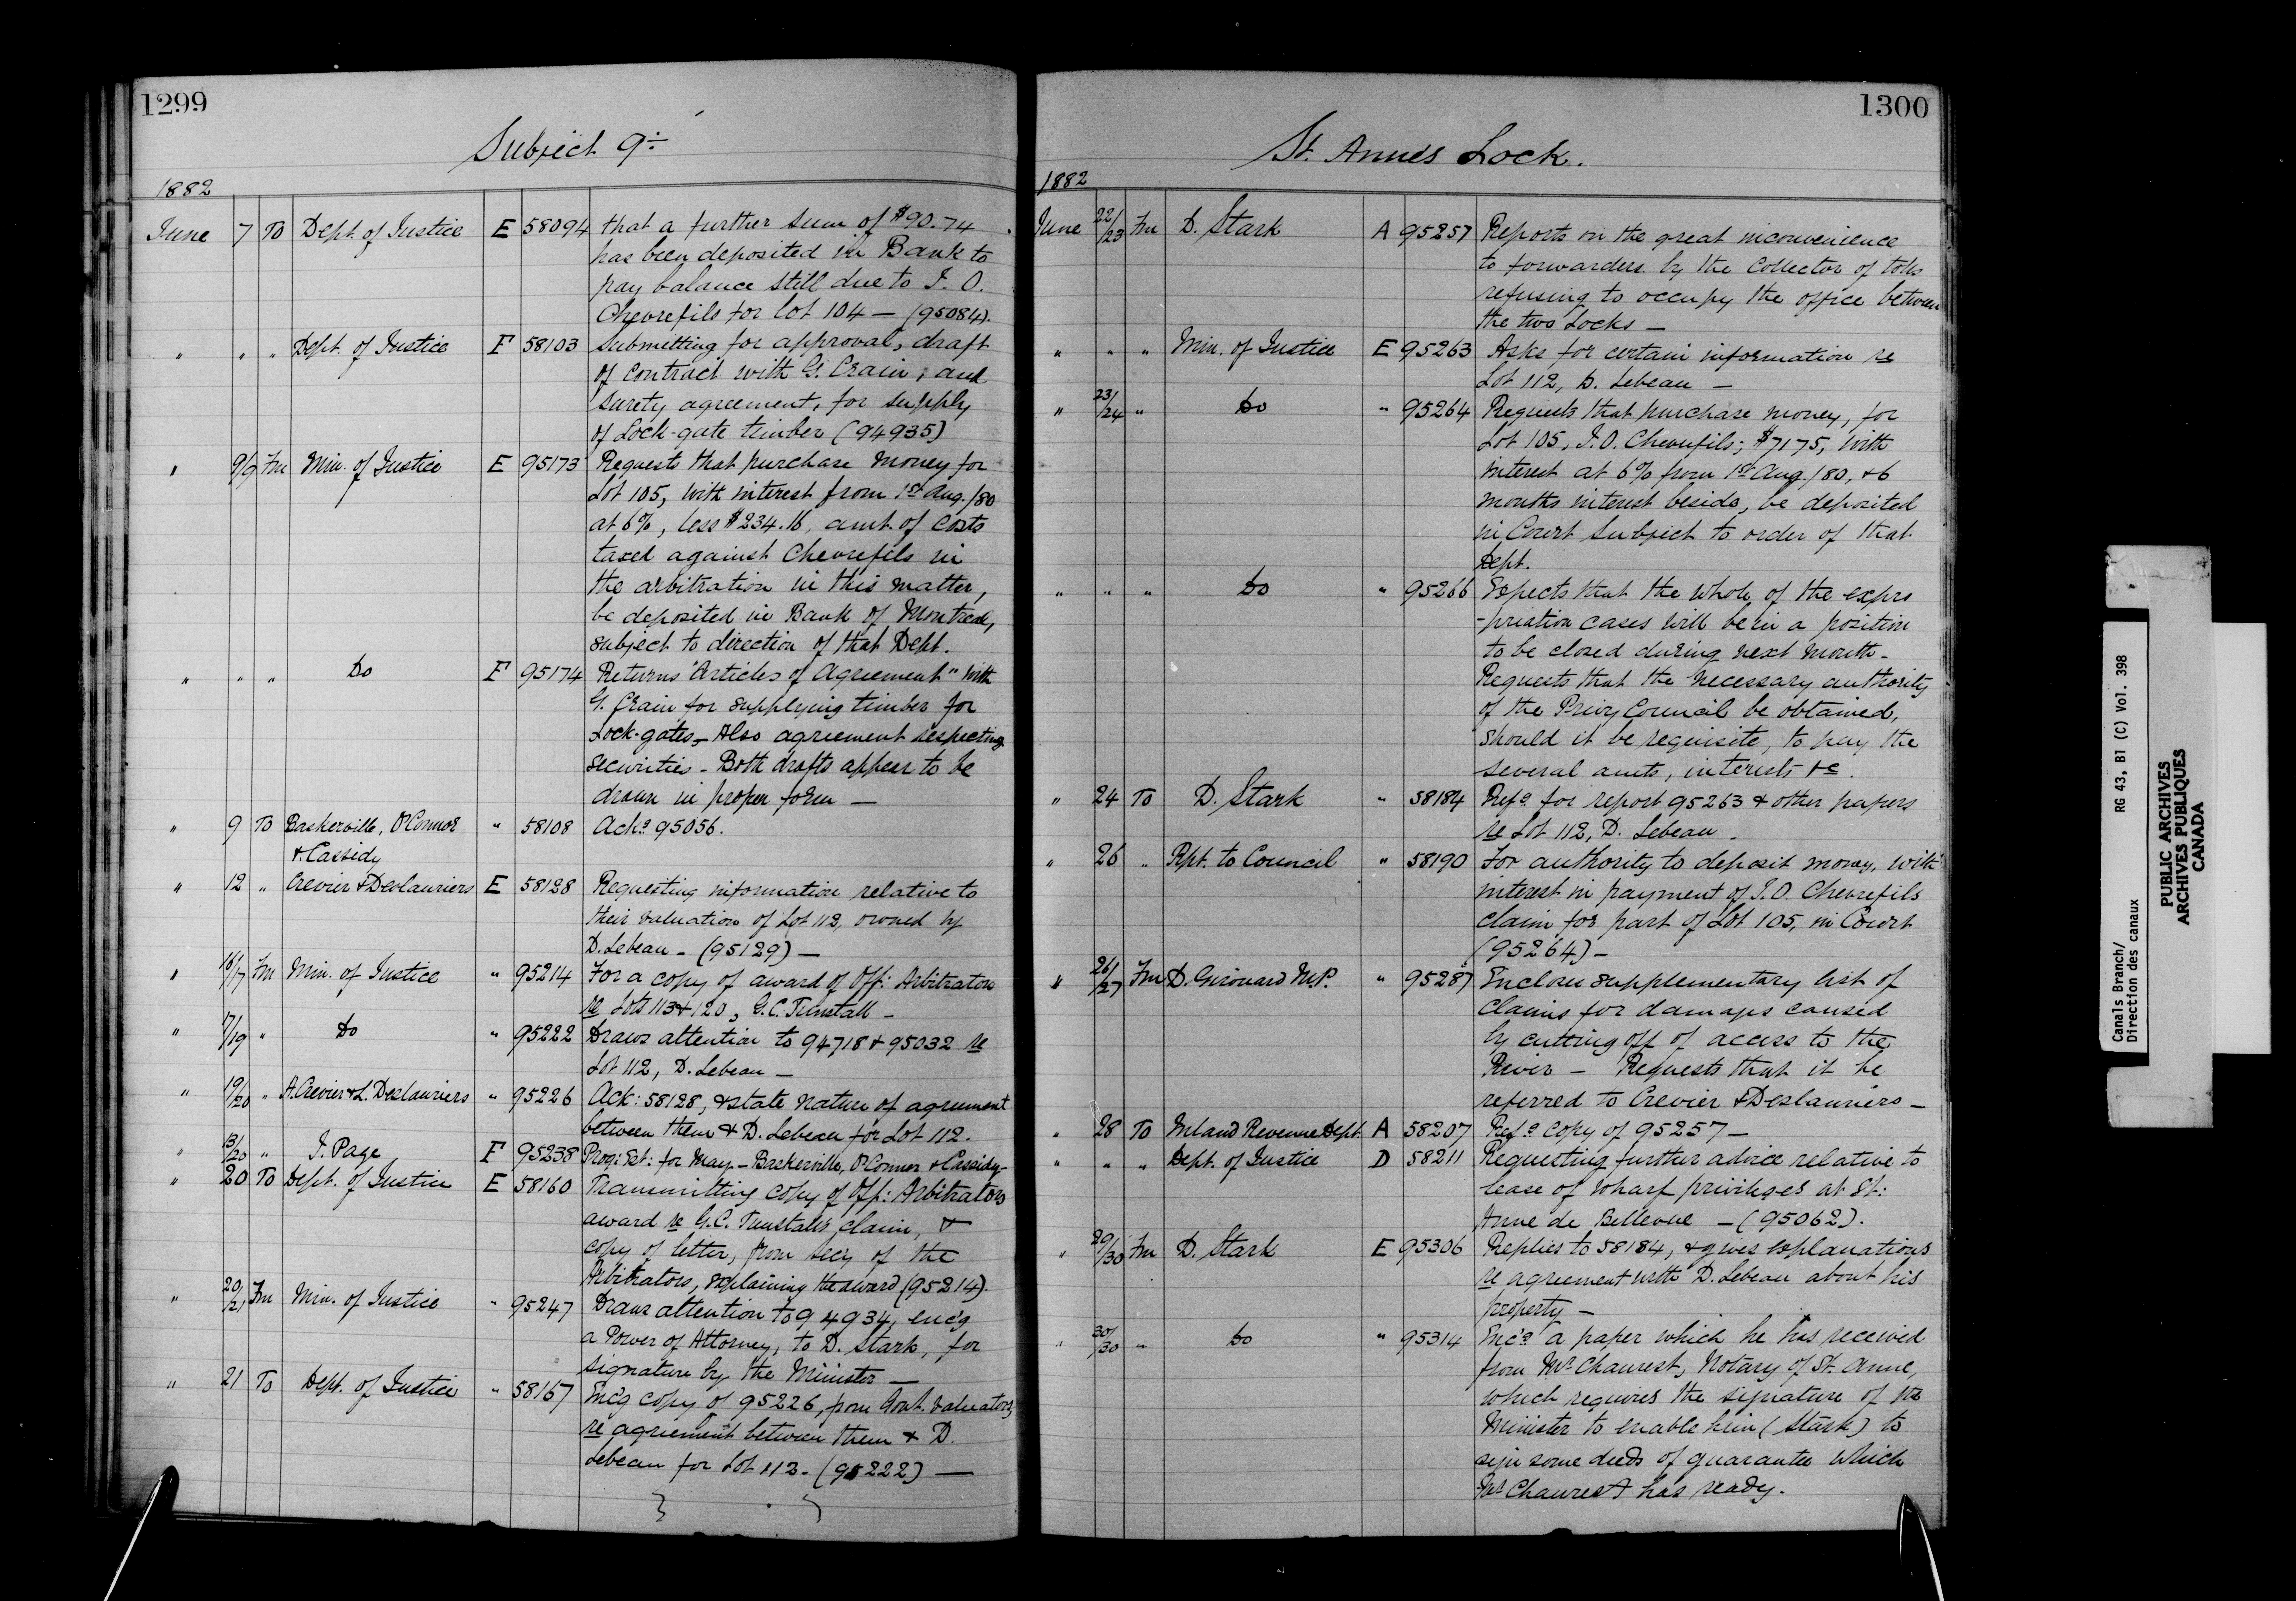 1299
Subject 9÷
1882
June 7 To Dept. of Justice E 58094 that a further sum of $90.74
has been deposited in Bank to
pay balance still due to J. O.
Chevrefils for lot 104 — (95084).
" " " Dept. of Justice F 58103 Submitting for approval, draft
of contract with G. Crain, and
surety agreement, for supply
of Lock-gate timber (94935)
" 9/9 Fm Min. of Justice E 95173 Requests that purchase money for
Lot 105, with interest from 1st Aug./80
at 6%, less $234.16, amt. of costs
taxed against Chevrefils in
the arbitration in this matter,
be deposited in Bank of Montreal,
subject to direction of that Dept.
" " " Do F 95174 Returns "Articles of Agreement" with
G. Crain for supplying timber for
Lock-gates, — Also agreement respecting
securities — Both drafts appear to be
drawn in proper form —
" 9 To Baskerville, O'Connor " 58108 Ackg 95056.
& Cassidy
" 12 " Crevier & Deslauriers E 58128 Requesting information relative to
their valuation of Lot 112, owned by
D. Lebeau — (95129) —
" 16/17 Fm Min. of Justice " 95214 For a copy of award of Off: Arbitrators
re Lots 113 & 120, G. C. Tunstall —
" 17/19 " Do " 95222 Draws attention to 94718 & 95032 re
Lot 112, D. Lebeau —
" 19/20 " A. Crevier & L. Deslauriers " 95226 Ack: 58128, & state nature of agreement
between them & D. Lebeau for Lot 112.
" 13/20 " J. Page F 95238 Prog: Est: for May — Baskerville, O'Connor & Cassidy —
" 20 To Dept. of Justice E 58160 Transmitting copy of Off: Arbitrators
award re G. C. Tunstall's claim, &
copy of letter, from Secy of the
Arbitrators, explaining the award (95214).
" 20/21 Fm Min. of Justice " 95247 Draws attention to 94934, enc'g
a Power of Attorney, to D. Stark, for
signature by the Minister —
" 21 To Dept. of Justice " 58167 Enc'g copy of 95226, from Govt. valuators
re agreement between them & D.
Lebeau for Lot 112. (95222) —
1300
St. Anne's Lock.
1882
June 22/23 Fm D. Stark A 95257 Reports on the great inconvenience
to forwarders by the Collector of tolls
refusing to occupy the office between
the two Locks —
" " " Min. of Justice E 95263 Asks for certain information re
Lot 112, D. Lebeau —
" 23/24 " Do " 95264 Requests that purchase money, for
Lot 105, J. O. Chevrefils; $7175, with
interest at 6% from 1st Aug./80, & 6
months interest beside, be deposited
in Court subject to order of that
Dept.
" " " Do " 95266 Expects that the whole of the expro
-priation cases will be in a position
to be closed during next month —
Requests that the necessary authority
of the Privy Council be obtained,
should it be requisite, to pay the
several amts, interests &c.
" 24 To D. Stark " 58184 Refg for report 95263 & other papers
re Lot 112, D. Lebeau —
" 26 " Rpt. to Council " 58190 For authority to deposit money, with
interest in payment of J. O. Chevrefils
claim for part of Lot 105, in Court
(95264) —
" 26/27 Fm D. Girouard M.P. " 95287 Encloses supplementary list of
claims for damages caused
by cutting off of access to the
River — Requests that it be
referred to Crevier & Deslauriers —
" 28 To Inland Revenue Dept. A 58207 Refg copy of 95257 —
" " " Dept. of Justice D 58211 Requesting further advice relative to
lease of wharf privileges at St:
Anne de Bellevue — (95062).
" 29/30 Fm D. Stark E 95306 Replies to 58184, & gives explanations
re agreement with D. Lebeau about his
property —
" 30/30 " Do " 95314 Enc'g a paper which he has received
from Mr Chaurest, Notary of St. Anne,
which requires the signature of the
Minister to enable him (Stark) to
sign some deeds of guarantee which
Mr Chaurest has ready.
Canals Branch/ RG 43, B1 (C) Vol. 398
Direction des canaux
PUBLIC ARCHIVES
ARCHIVES PUBLIQUES
CANADA